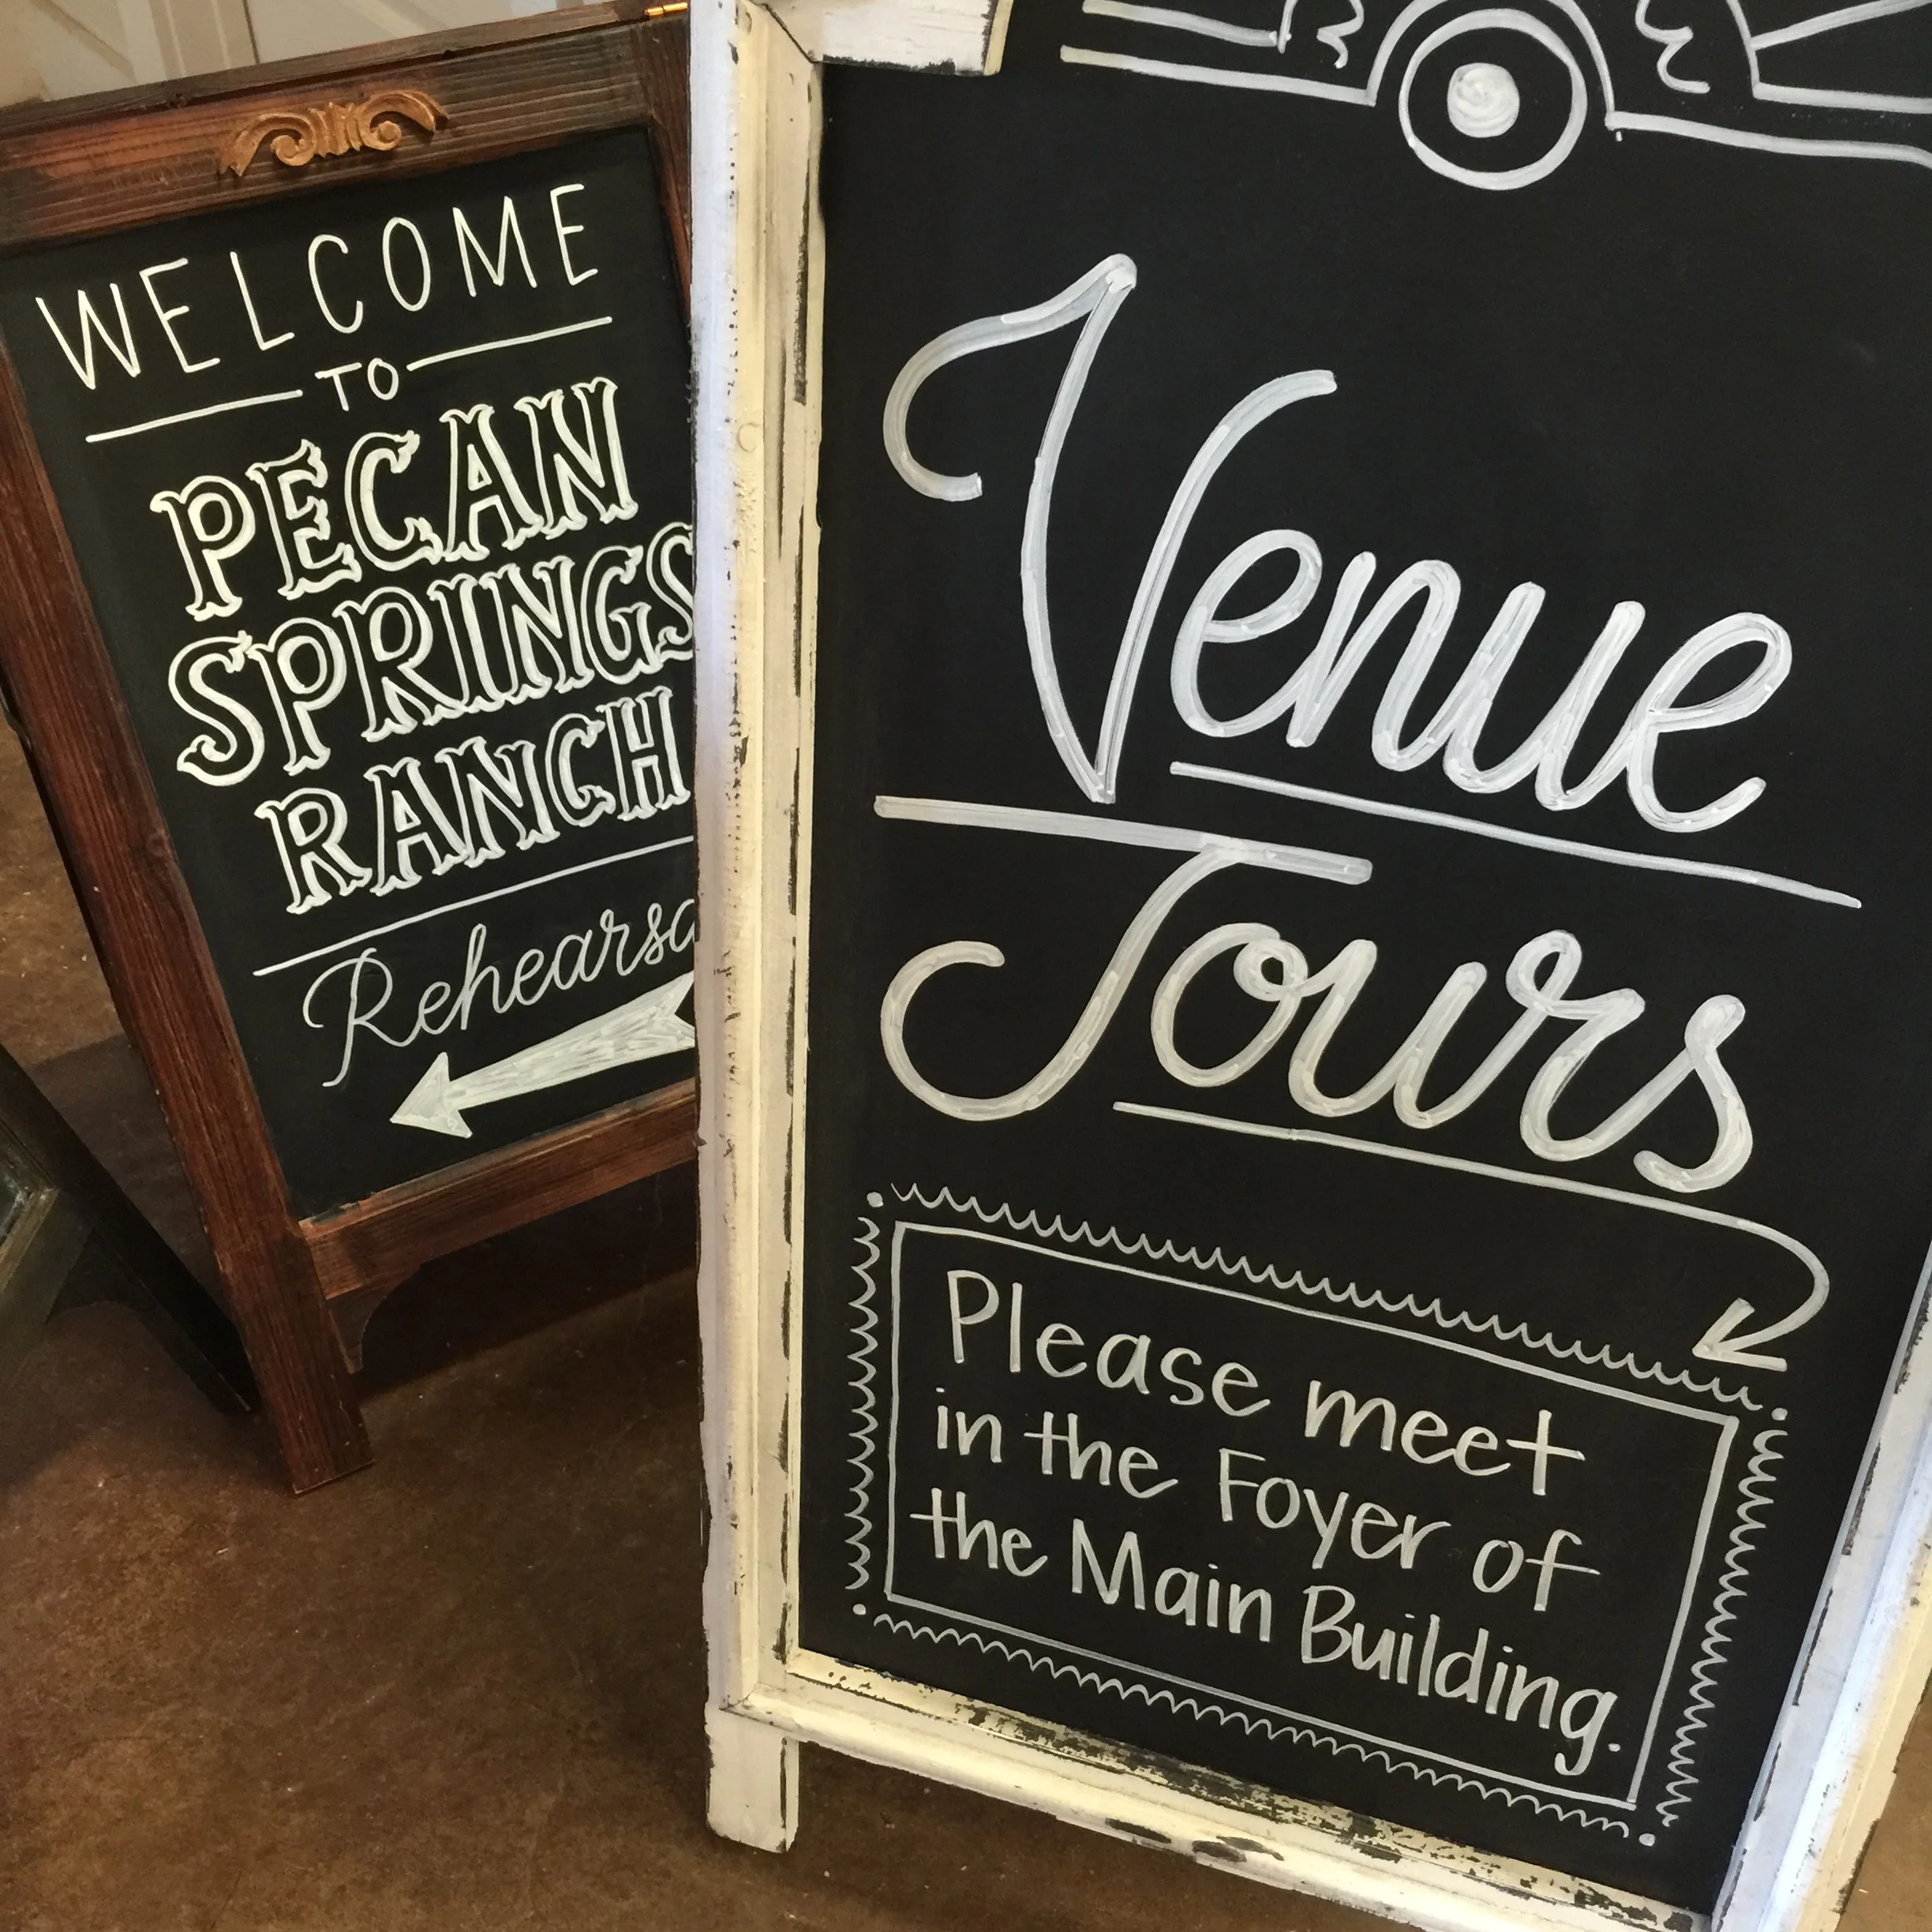 WELCOME
TO
PECAN
SPRINGS
RANCH
Venue
Tours
Please meet
in the Foyer of
the Main Building.